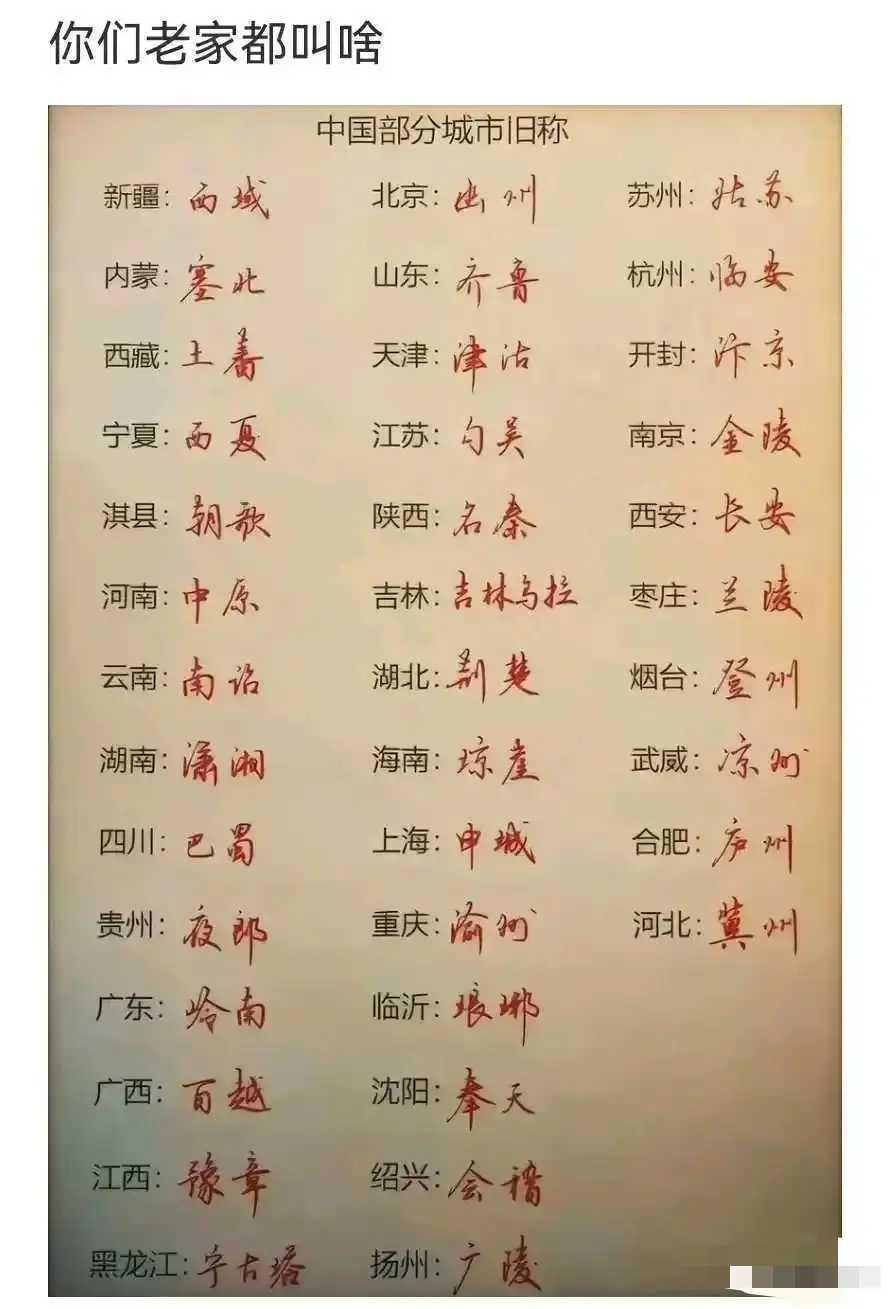 你们老家都叫啥
中国部分城市旧称
新疆：西域 北京：幽州 苏州：姑苏
内蒙：塞北 山东：齐鲁 杭州：临安
西藏：土蕃 天津：津沽 开封：汴京
宁夏：西夏 江苏：勾吴 南京：金陵
淇县：朝歌 陕西：名秦 西安：长安
河南：中原 吉林：吉林乌拉 枣庄：兰陵
云南：南诏 湖北：荆楚 烟台：登州
湖南：潇湘 海南：琼崖 武威：凉州
四川：巴蜀 上海：申城 合肥：庐州
贵州：夜郎 重庆：渝州 河北：冀州
广东：岭南 临沂：琅琊
广西：百越 沈阳：奉天
江西：豫章 绍兴：会稽
黑龙江：宁古塔 扬州：广陵